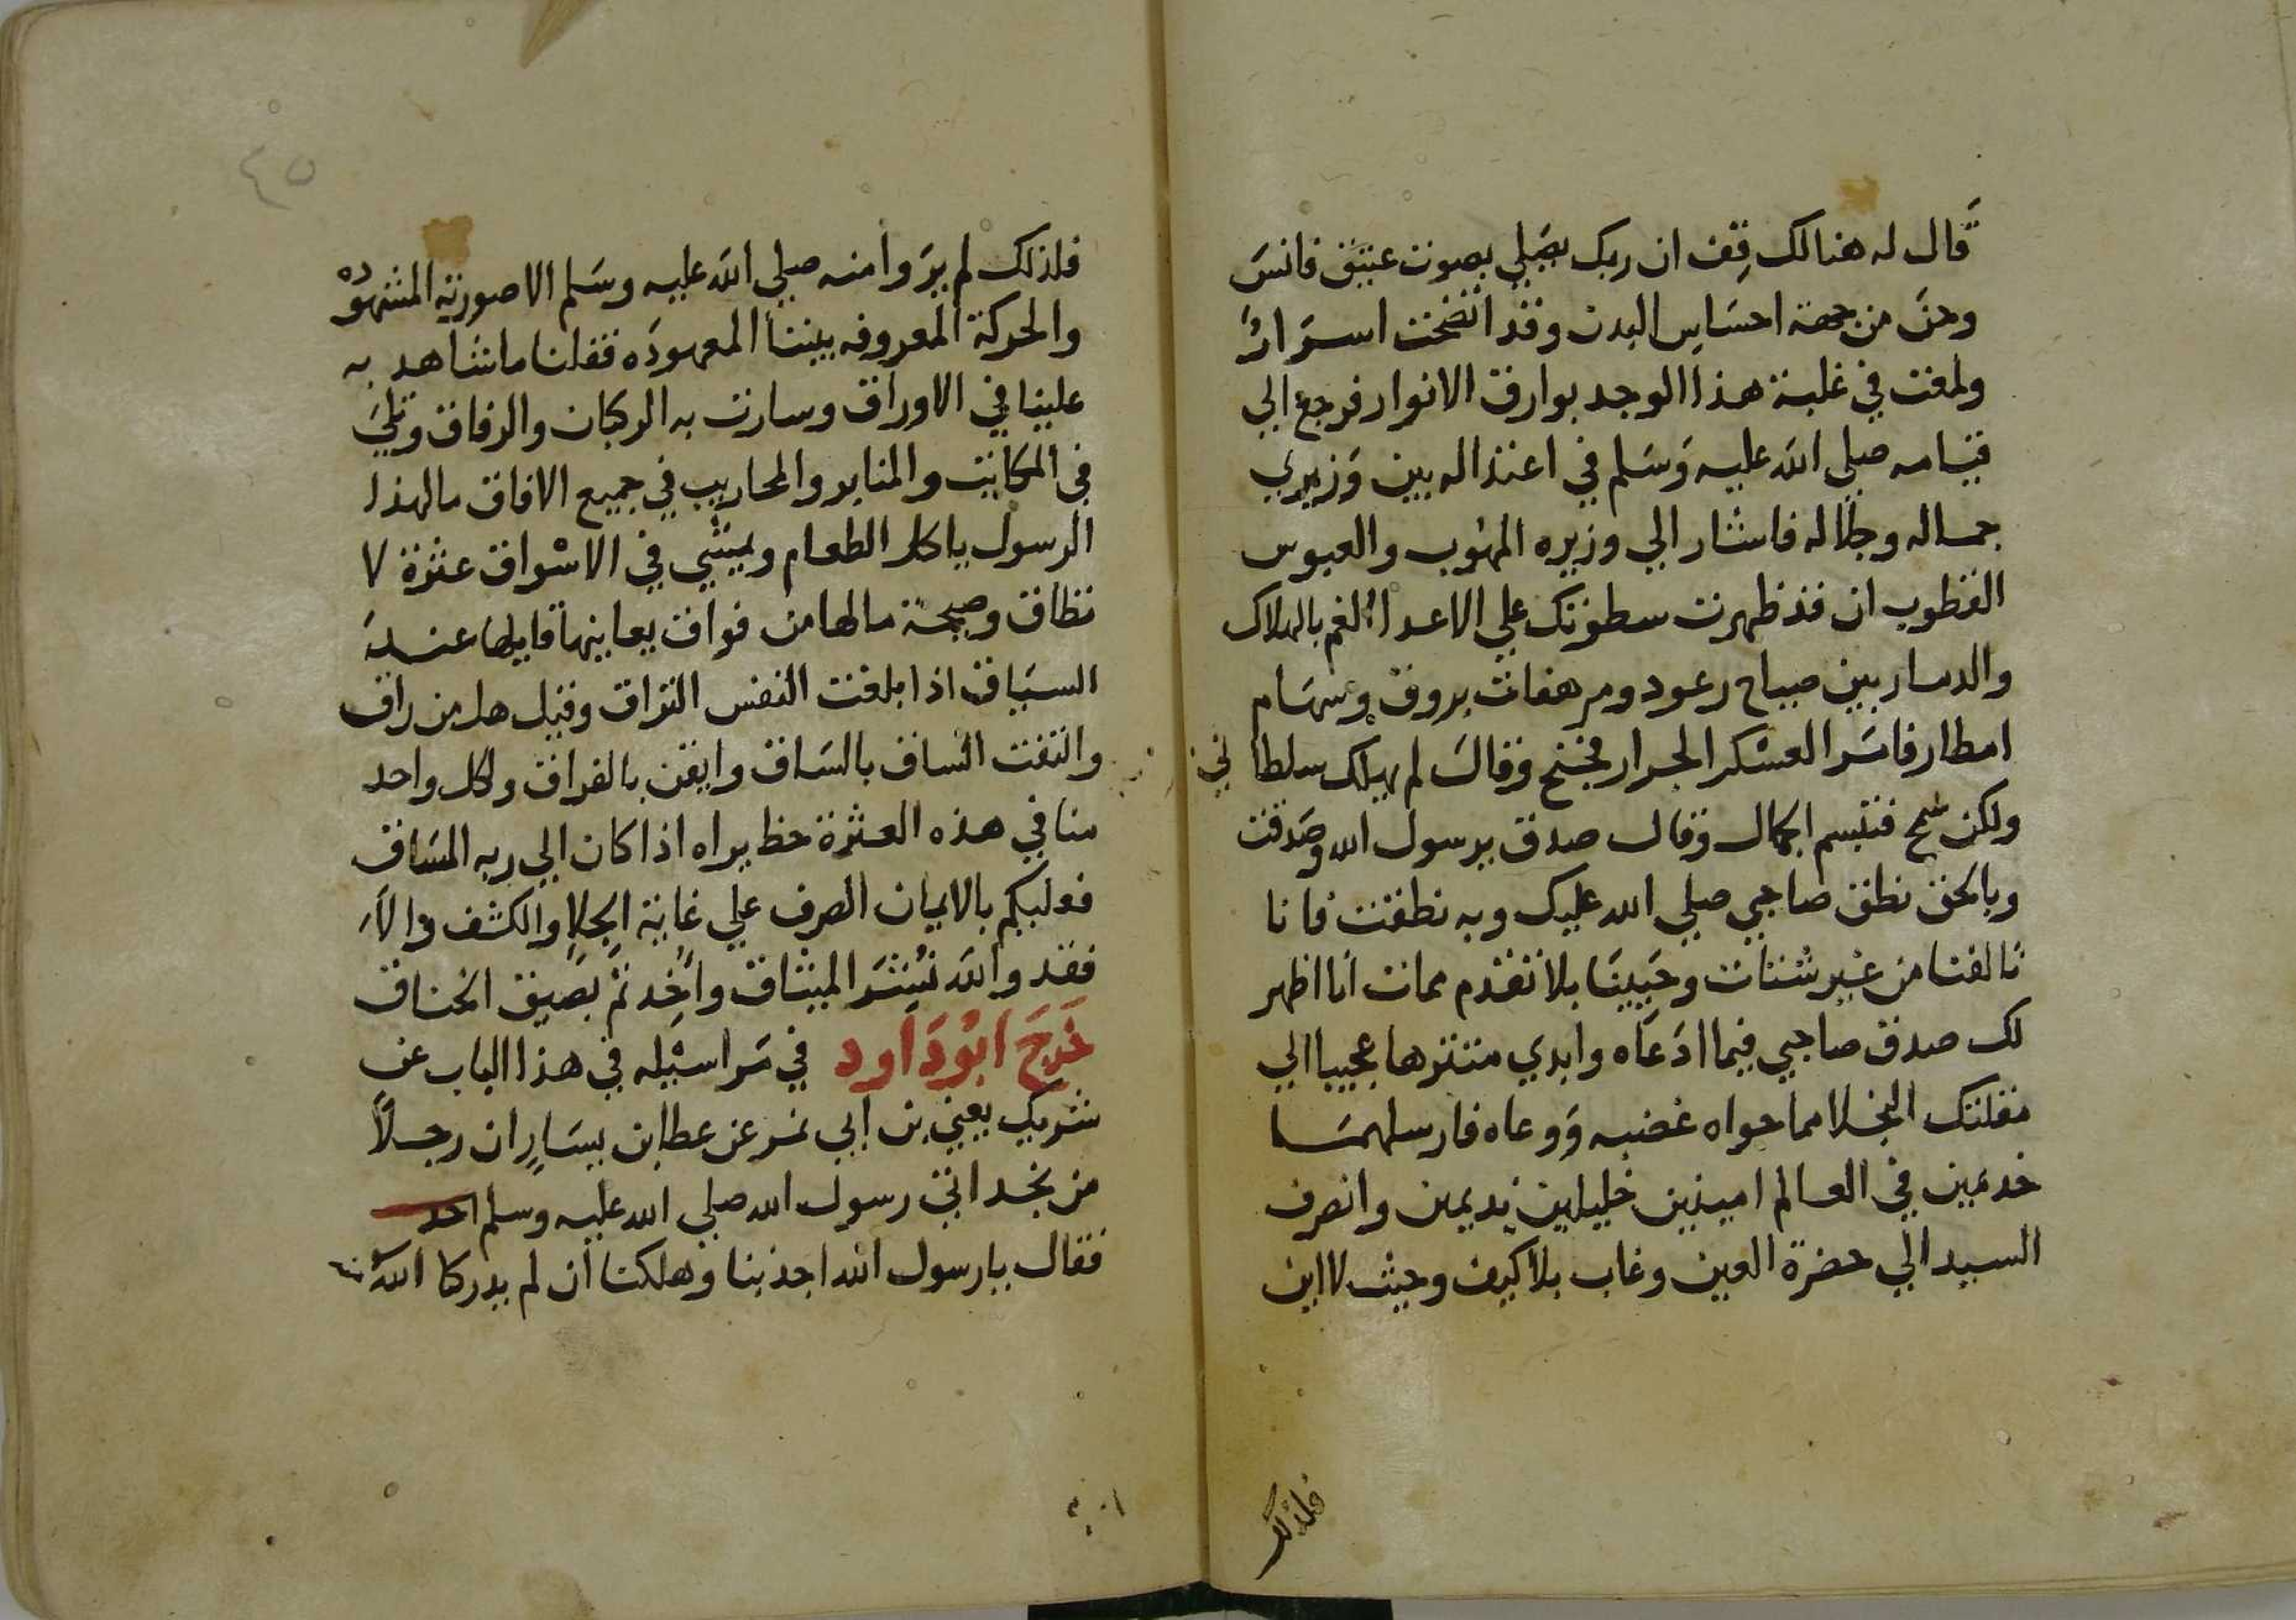 قال له هنالك قف ان ربك يصلي بصوت عتيق فانسَ
وحنَّ من جهة احساس البدن وقد اتضحت اسرار
ولمعت في غلبة هذا الوجد بوارق الانوار فرجع الي
قيامه صلي الله عليه وسلم في اعتداله بين وزيري
جماله وجلاله فاشار الي وزيره المهوب والعبوس
القطوب ان قد ظهرت سطوتك علي الاعدا بالهلاك
والدمار بين صباح رعود ومرهفات بروق وسهام
امطار فامر العسكر الجرار فجنح وقال لم يهلك سلطاني
ولكن سمح فتبسم الجمال وقال صدق يرسول الله وصدقت
وبالحق نطق صاحبي صلي الله عليك وبه نطقت فانا
تالفنا من غير شتات وحيينا بلا تقدم ممات انا اظهر
لك صدق صاحبي فيما ادعاه وابدي منتزها عجيبا الي
مقلتك النجلا مما حواه غضبه ووعاه فارسلهمسا
خديمين في العالم امينين خليلين نديمين وانصرف
السيد الي حضرة العين وغاب بلا كيف وحيث لا اين
فلذلك
٤٥
فلذلك لم يروا منه صلي الله عليه وسلم الا صورته المشهوده
والحركة المعروفه بيننا المعهوده فقلنا ما نشاهد به
علينا في الاوراق وسارت به الركبان والرفاق وتلي
في المكاتيب والمنابر والمحاريب في جميع الافاق ما لهذا
الرسول ياكل الطعام ويمشي في الاسواق عثرة لا
تطاق وصيحة مالها من فواق يعاينها قايلها عند
السياق اذا بلغت النفس التراق وقيل هل من راق
والتفت الساق بالساق وايقن بالفراق ولكل واحد
منا في هذه العثرة حظ يراه اذا كان الي ربه المساق
فعليكم بالايمان الصرف علي غاية الجلا والكشف والا
فقد والله نُشر الميثاق واُخذتم بضيق الخناق
خرج ابوداود في مراسيله في هذا الباب عن
شريك يعني بن ابي نمر عن عطا بن يسار ان رجلا
من نجد اتي رسول الله صلي الله عليه وسلم
فقال يارسول الله اجدبنا وهلكنا ان لم يدركنا الله